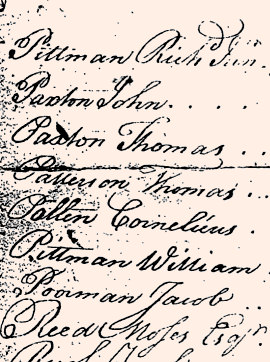 Pittman Richd Jun.
Paxton John . . . .
Paxton Thomas . . .
Patterson Thomas . . .
Pallen Cornelius .
Pittman William
Poorman Jacob . .
Reed Moses Esqr.